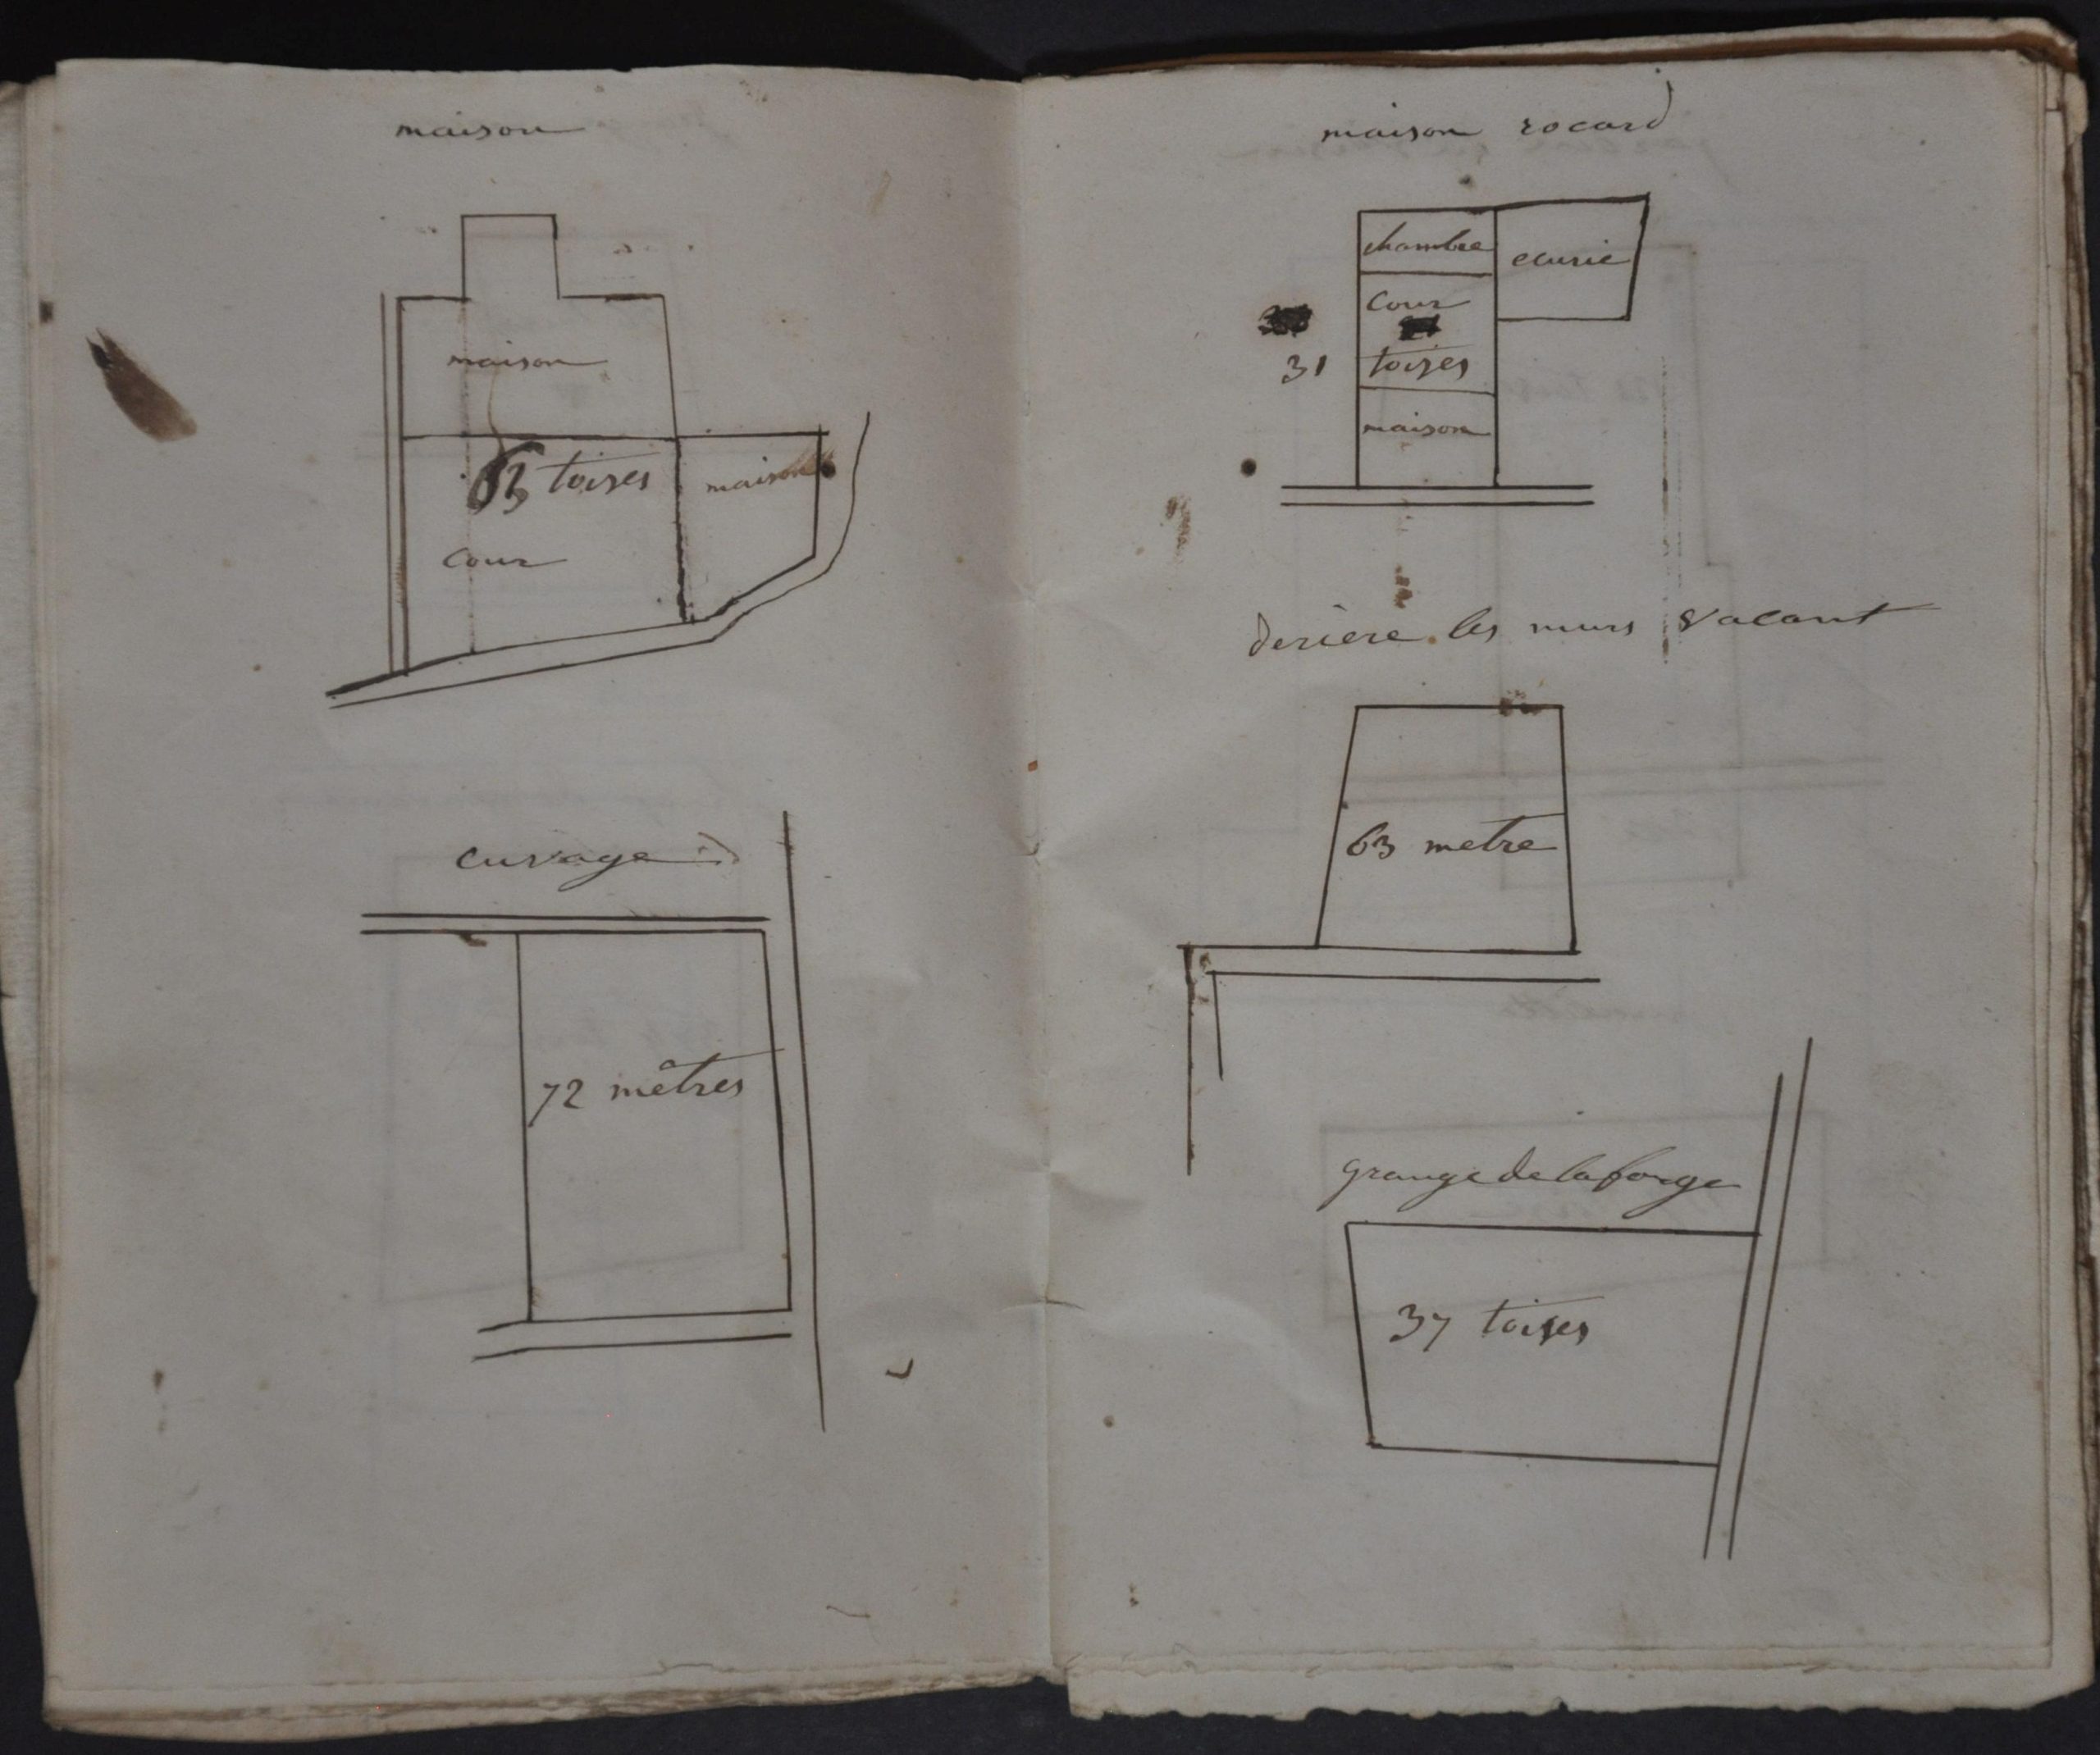 maison
maison
63 toises
maison
cour
cuvage
72 mêtres
maison rocard
chambre
ecurie
Cour
31 toises
maison
deriere les murs vacant
63 metre
grange de la forge
37 toises